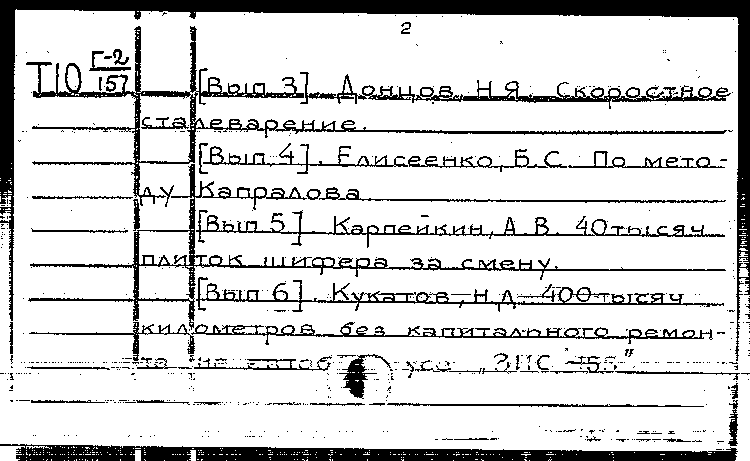 2
Т10 Г-2/157 [Вып 3]. Донцов, Н.Я. Скоростное
сталеварение.
[Вып. 4]. Елисеенко, Б.С. По мето-
ду Капралова
[Вып 5]. Карпейкин, А.В. 40 тысяч
плиток шифера за смену.
[Вып 6]. Кукатов, Н.Д. 400 тысяч
километров без капитального ремон-
та на автобусе „ЗИС